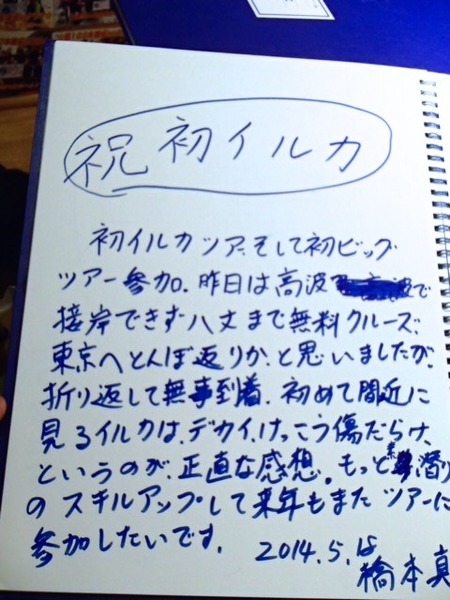 祝 初イルカ
初イルカツア、そして初ビッグ
ツアー参加。昨日は高波で
接岸できず八丈まで無料クルーズ、
東京へとんぼ返りか、と思いましたが、
折り返して無事到着。初めて間近に
見るイルカは、デカイ、けっこう傷だらけ、
というのが、正直な感想。もっと素潜り
のスキルアップして来年もまたツアーに
参加したいです。 2014.5.18
橋本真